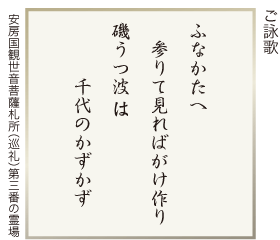 ご詠歌
ふなかたへ
参りて見ればがけ作り
磯うつ波は
千代のかずかず
安房国観世音菩薩札所(巡礼)第三番の霊場